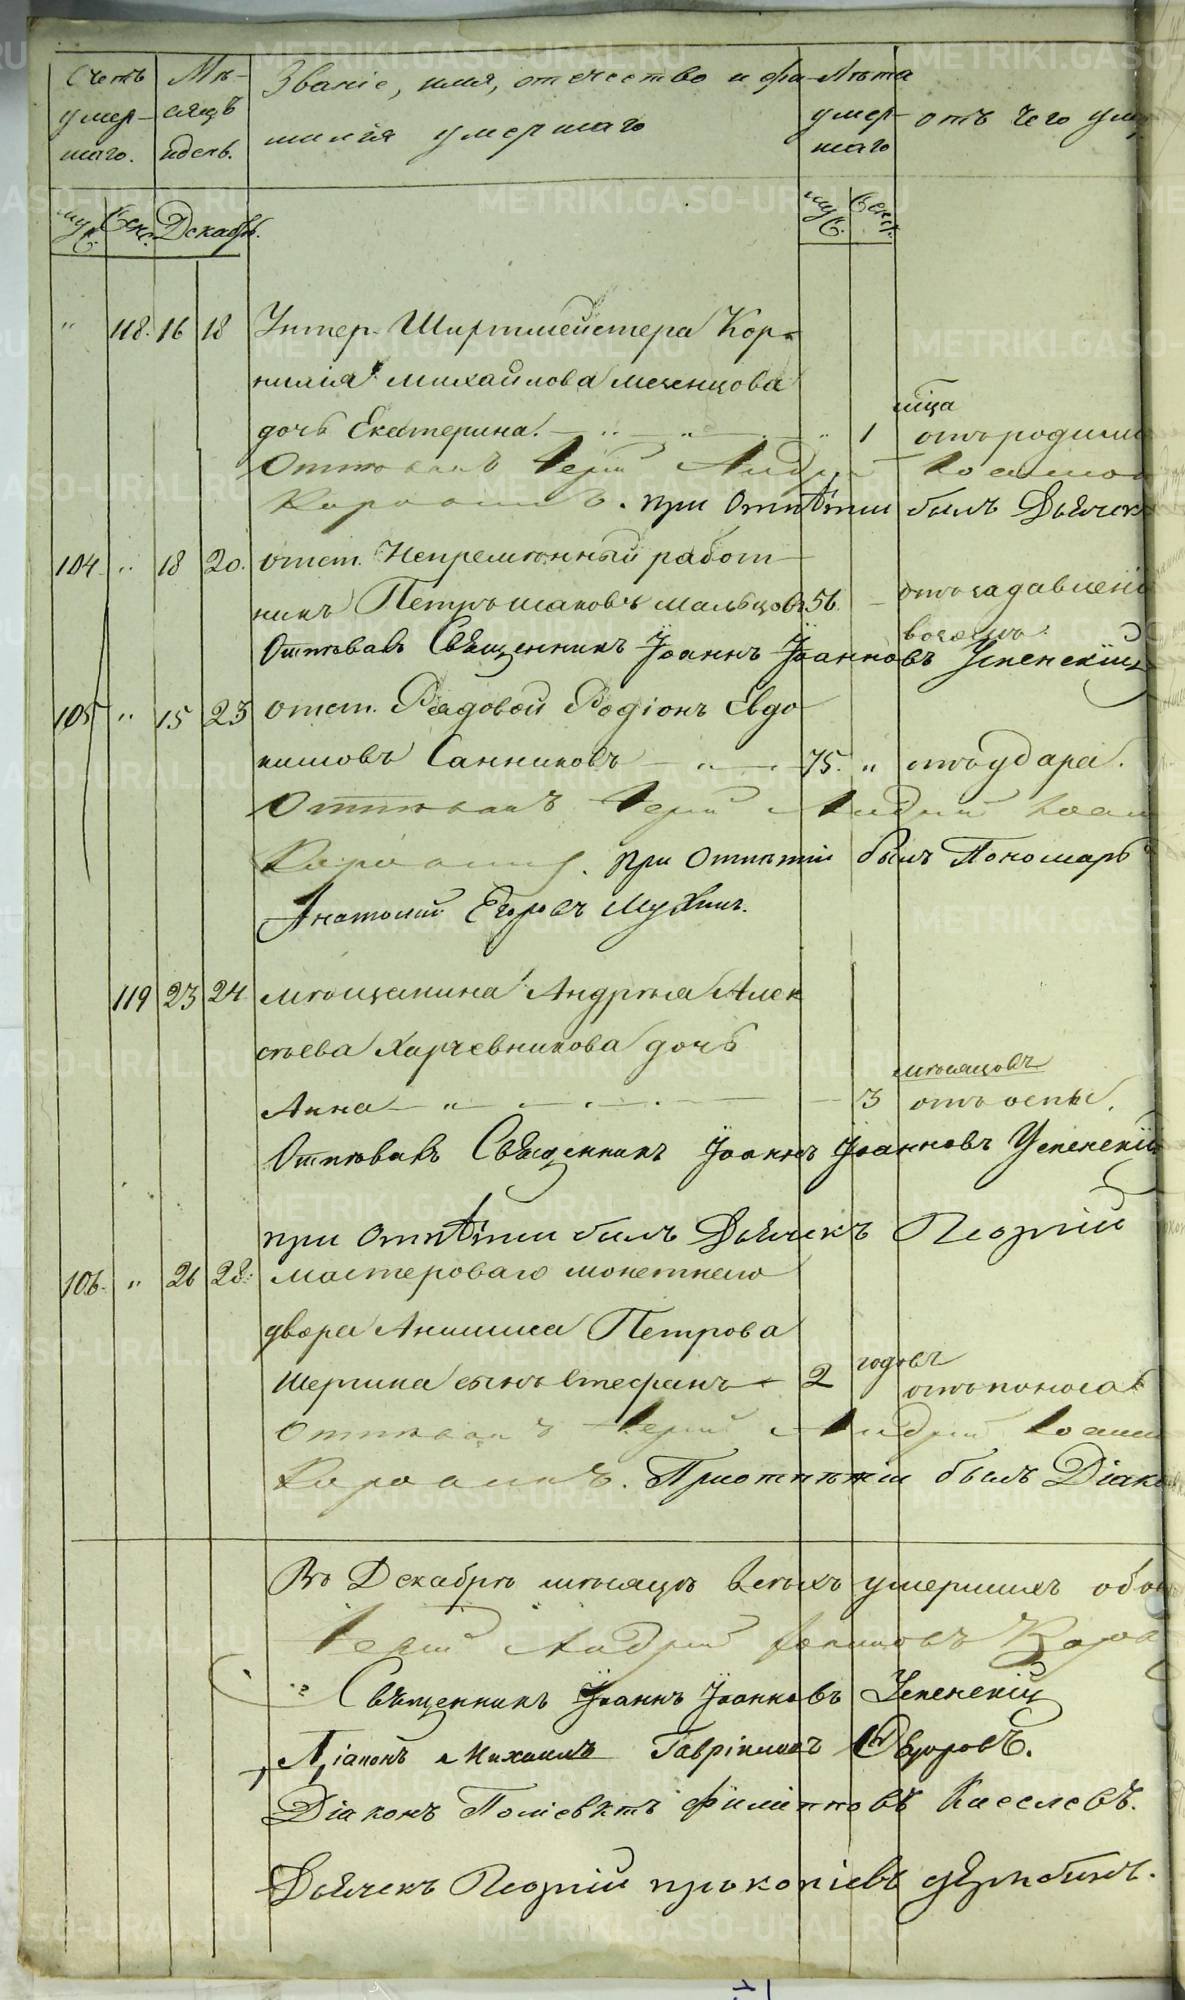 Счетъ умер-шаго. Мѣ-сяцъ идень. Званіе, имя, отчество и фа-милія умершаго Лѣта умер-шаго отъ чего уме
муж. женс. Декабрь. муж. женс.
" 118. 16 18 Унтер-Шихтмейстера Кор-
нилія Михайлова Меченцова
мѣсяца
дочь Екатерина. " 1 отъ родими
Отпѣвалъ Іерей Андрей Іоанно
при отпѣтіи былъ Дьячекъ
104. " 18 20. отст. Непремѣнный работ-
никъ Петръ Яковъ Мальцовъ 56. отъ задавлені
возомъ.
Отпѣвалъ Священникъ Іоаннъ Іоанновъ Успенскій
105 " 15 23 отст. Рядовой Родіонъ Евдо
кимовъ Санниковъ 75. " отъ удара.
Отпѣвалъ Іерей Андрей Іоан
при отпѣтіи былъ Пономарь
Анатолій Егоровъ Мухинъ.
119 23 24 мѣщанина Андрея Алек
сѣева Харчевникова дочь
мѣсяцовъ
Анна " 3 отъ оспы.
Отпѣвалъ Священникъ Іоаннъ Іоанновъ Успенскій
при отпѣтіи былъ Дьячекъ Георгій
106. " 26 28. мастероваго монетнаго
двора Анисима Петрова
годовъ
сынъ Стефанъ 2 отъ поноса
Отпѣвалъ Іерей Андрей Іоанн
При отпѣтіи былъ Діако
Въ Декабрѣ мѣсяцѣ всѣхъ умершихъ обо
Іерей Андрей Іоанновъ
Священникъ Іоаннъ Іоанновъ Успенскій
Діаконъ Михаилъ Гавріиловъ Ѳедоровъ.
Діаконъ Поліевктъ Филипповъ Киселевъ.
Дьячекъ Георгій Прокопіевъ Дерябинъ.
METRIKI.GASO-URAL.RU